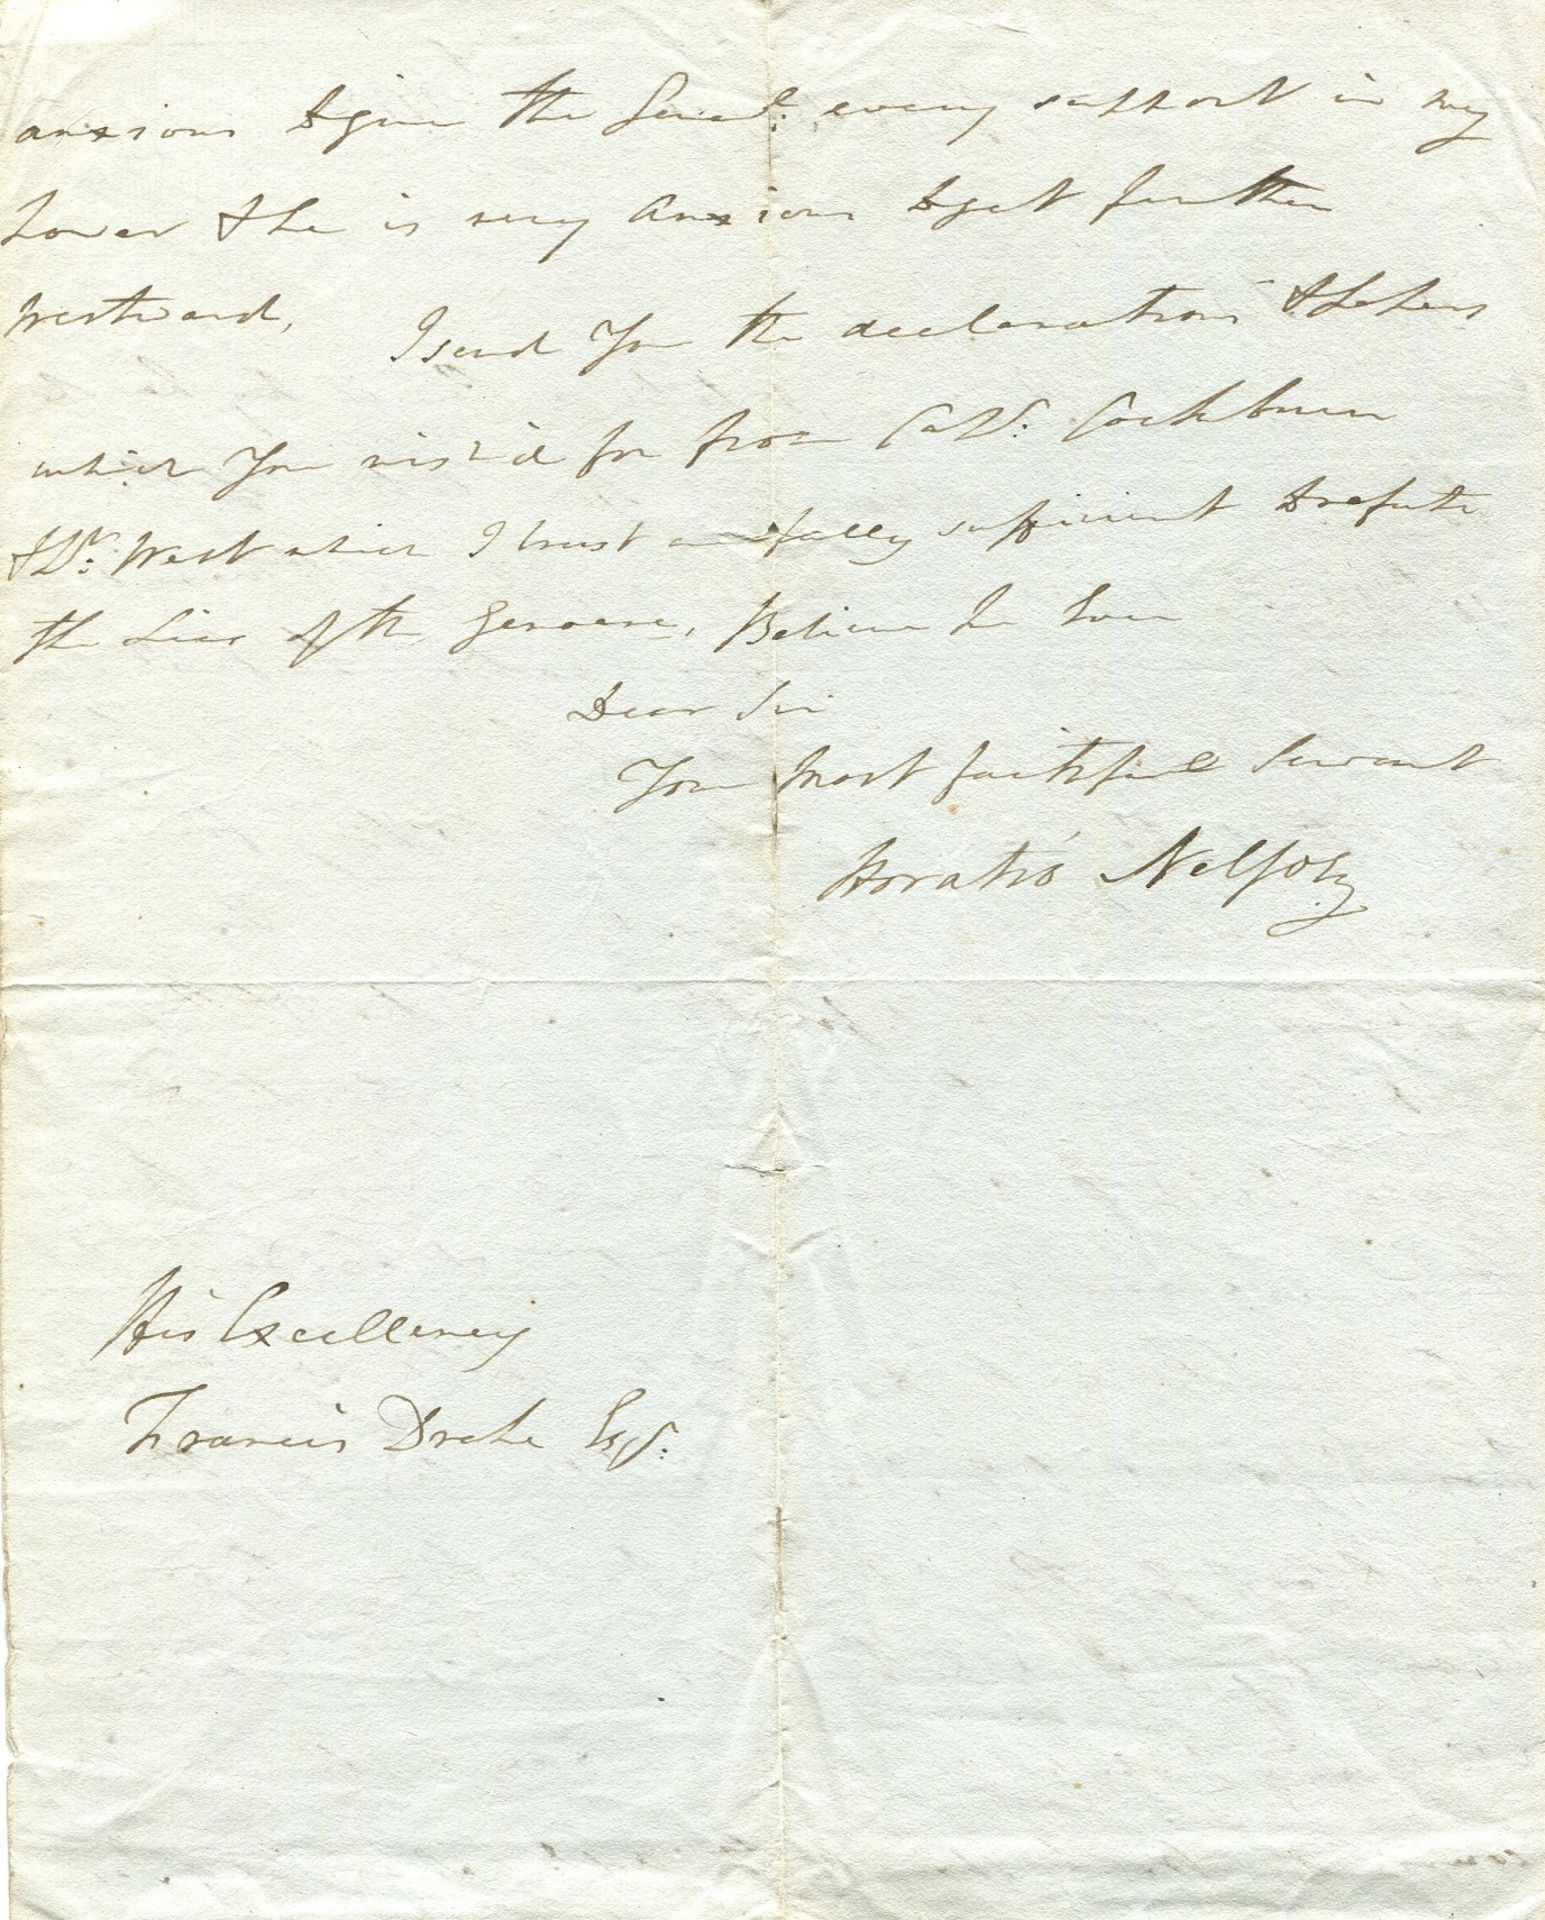 anxious to give the Genl: every support in my
Power & he is very anxious to get further
Westward, I send You the declarations & Letters
which You wish'd for from Capt: Cockburn
& Lt: West which I trust are fully sufficient to refute
the Lies of the Genoese, Believe Me Ever
Dear Sir
Your Most faithful Servant
Horatio Nelson
His Excellency
Francis Drake Esqr: